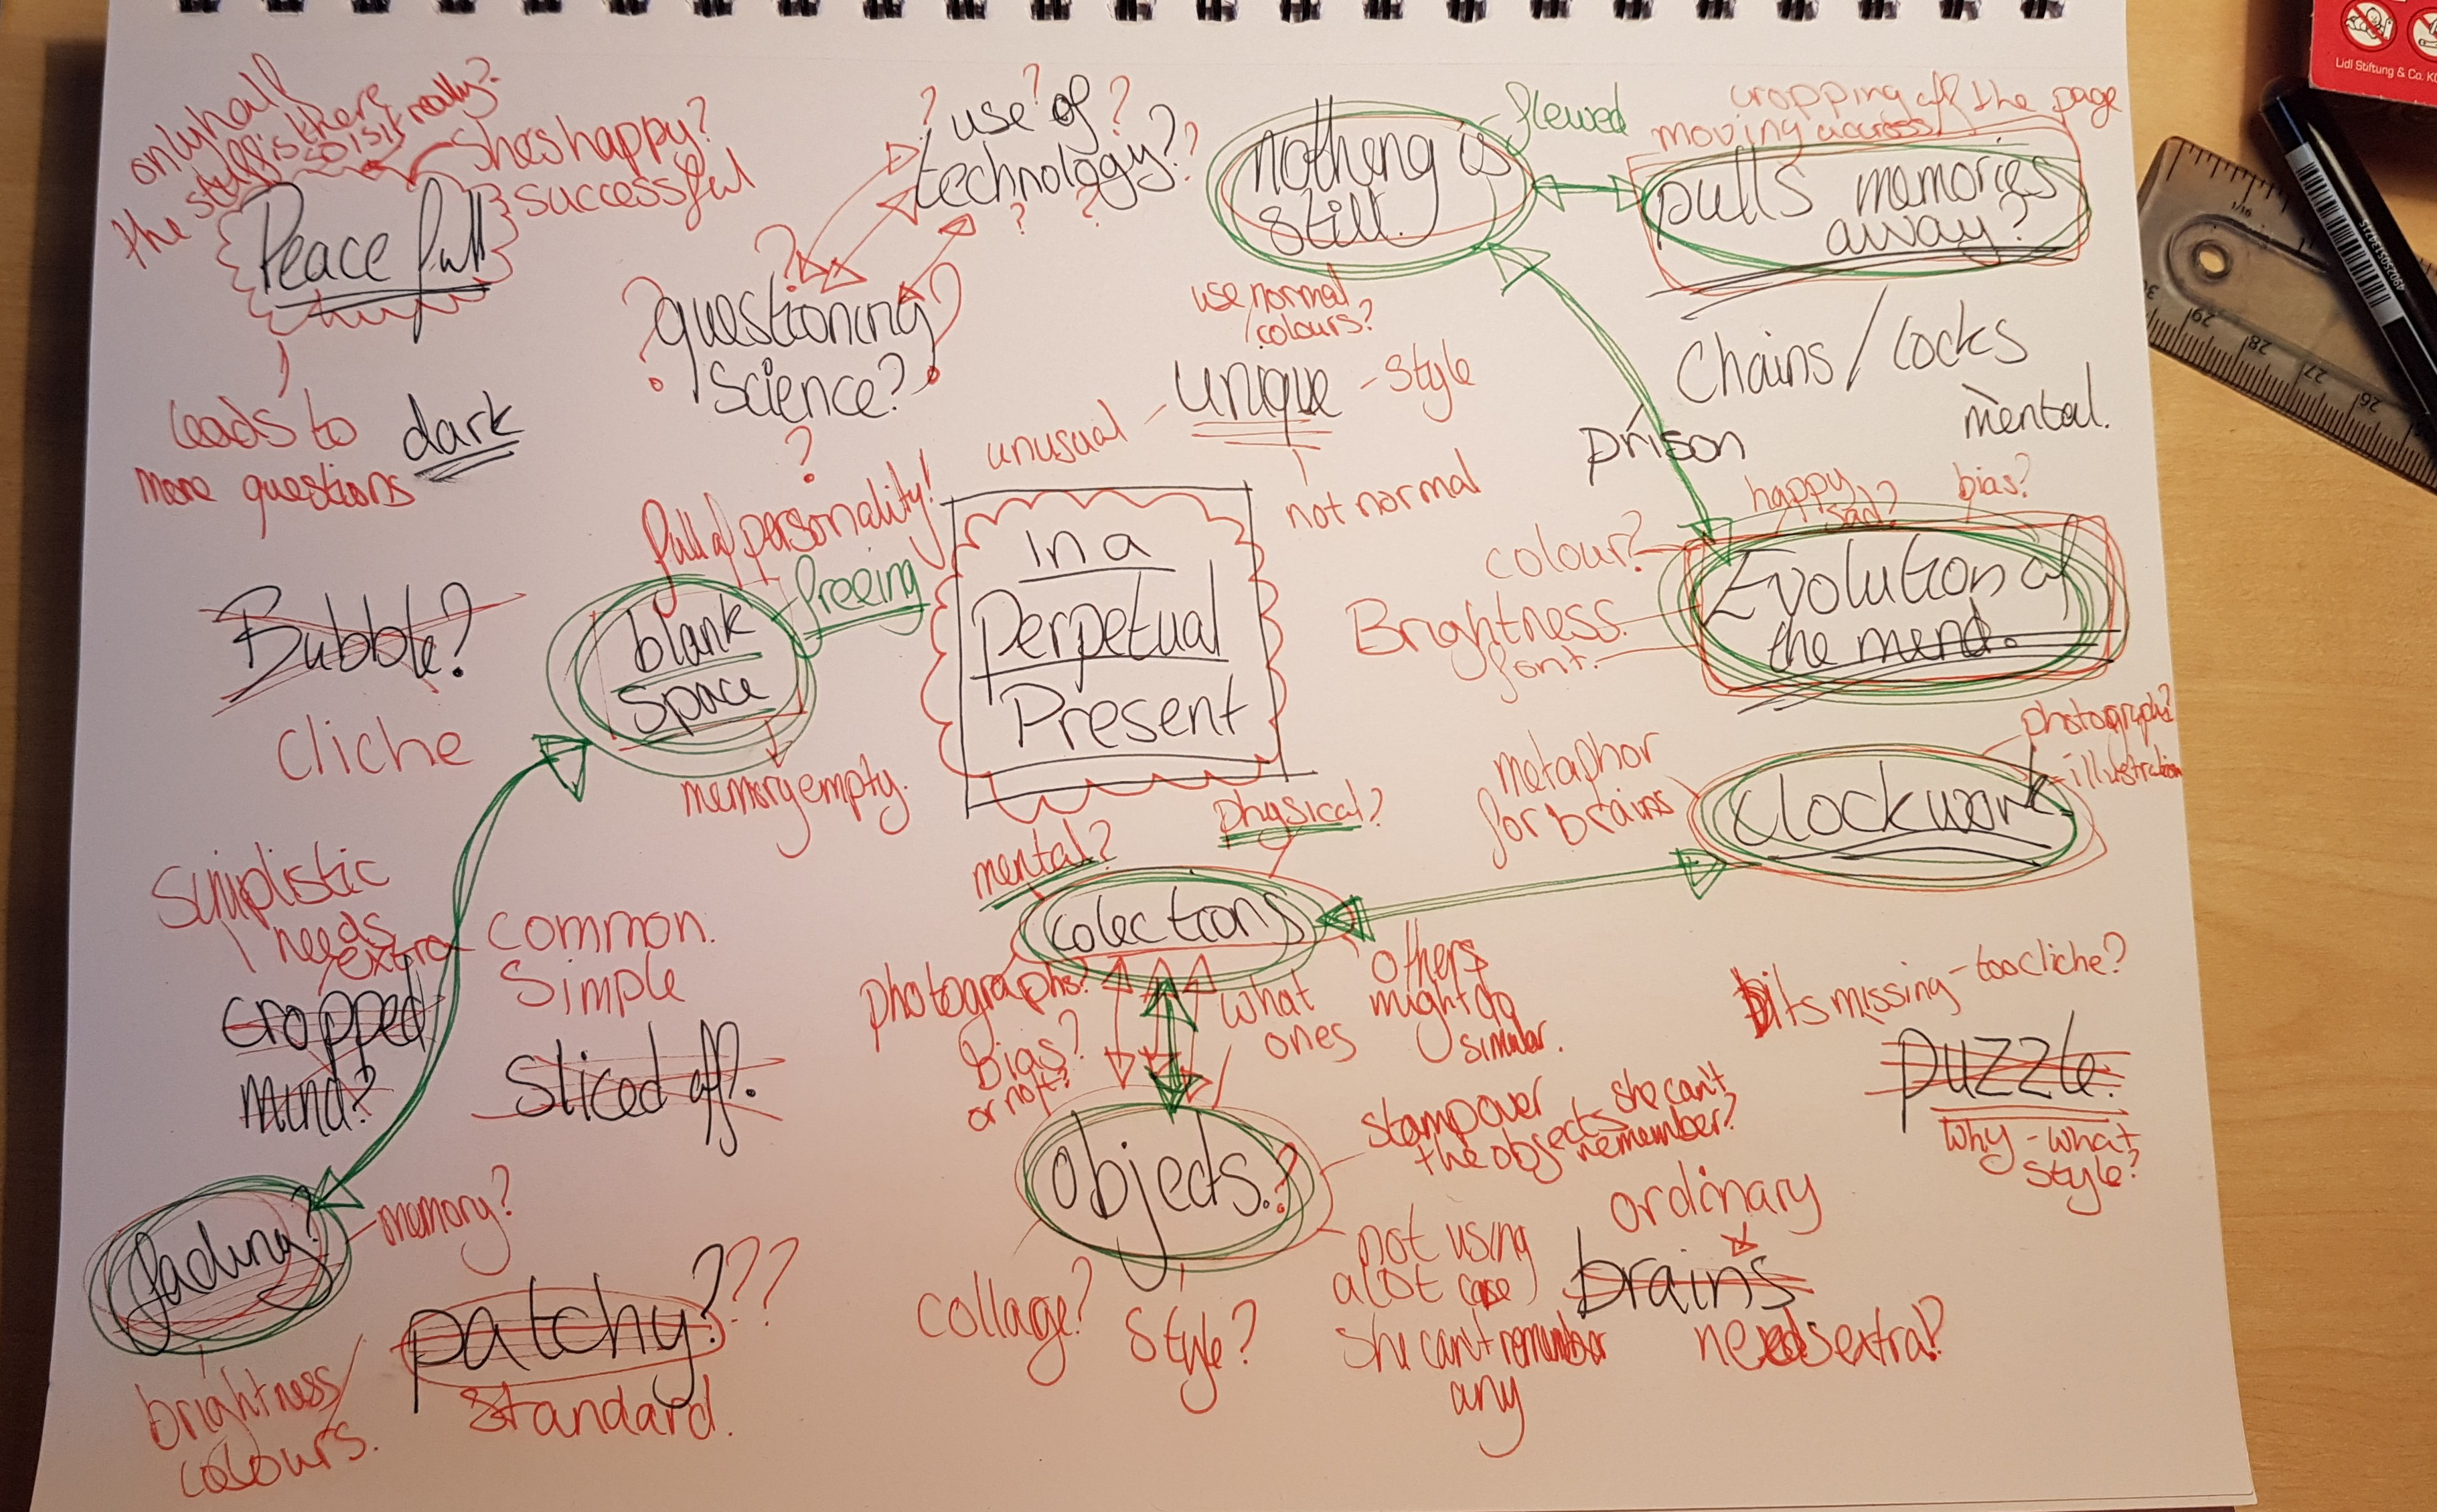 only half
the stuff is there
so is it really?
She's happy?
successful
Peace full
leads to
more questions
dark
? use of ?
technology??
? ?
?
?questioning?
science?
?
nothing is
still.
flewed
cropping off the page
moving across
pulls memories
away?
Chains / locks
mental.
prison
use normal
colours?
unique
- style
unusual
not normal
full of personality!
freeing
blank
space
memory empty.
in a
Perpetual
Present
happy
sad?
bias?
colour?
Brightness.
font.
Evolution of
the mind.
Bubble?
Cliche
photograph?
illustration
metaphor
for brains
clockwork
physical?
mental?
colections
photographs?
Bias?
or not?
what
ones
others
might do
similar.
Simplistic
needs
extra
cropped
mind?
common.
Simple
Sliced off.
bits missing - too cliche?
puzzle.
why - what
style?
objects.?
stamp over
the objects
she can't
remember?
not using
a lot case
she can't remember
any
collage?
Style?
ordinary
brains
needs extra?
fading?
memory?
brightness/
colours.
patchy???
standard.
Lidl Stiftung & Co. K
29
28
27
26